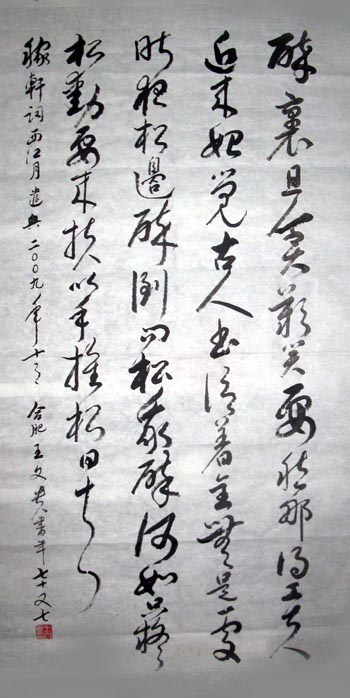 醉裏且貪歡笑要愁那得工夫
近来始觉古人書信着全無是處
昨夜松邊醉倒问松我醉何如只疑
松動要来扶以手推松曰去
稼軒詞西江月遣興二〇〇九年十 合肥王文贵書年七十又七